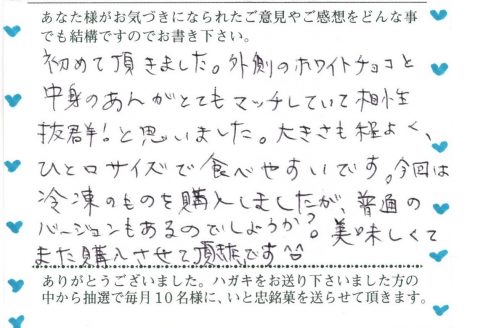 あなた様がお気づきになられたご意見やご感想をどんな事
でも結構ですのでお書き下さい。
初めて頂きました。外側のホワイトチョコと
中身のあんがとてもマッチしていて相性
抜群！と思いました。大きさも程よく、
ひと口サイズで食べやすいです。今回は
冷凍のものを購入しましたが、普通の
バージョンもあるのでしょうか？。美味しくて
また購入させて頂きたいです^^
ありがとうございました。ハガキをお送り下さいました方の
中から抽選で毎月10名様に、いと忠銘菓を送らせて頂きます。